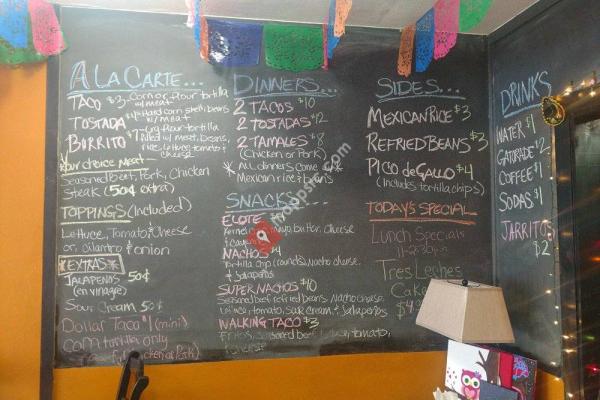 A LA CARTE...
TACO $3 - Corn or flour tortilla
w/ meat
TOSTADA Hard corn shell, beans
w/ meat
BURRITO $7 flour tortilla
filled w/ meat, beans,
rice, lettuce, tomato +
cheese
Your choice Meat
Seasoned Beef, Pork, Chicken
Steak (50¢ extra)
TOPPINGS (Included)
Lettuce, Tomato, & Cheese
or, cilantro & onion
*EXTRAS*
JALAPEÑOS 50¢
(en vinagre)
Sour Cream 50¢
Dollar Taco $1 (mini)
corn tortilla only
(Chicken or Pork)
DINNERS...
2 TACOS $10
2 TOSTADAS $12
2 TAMALES $8
(Chicken or Pork)
* All dinners come w/
Mexican rice & beans
SNACKS...
ELOTE
mayo, butter, cheese
& cayenne
NACHOS $4
Tortilla chip (rounds), nacho cheese,
& jalapeños
SUPER NACHOS $10
Seasoned beef, refried beans, nacho cheese,
lettuce, tomato, sour cream, & jalapeños
WALKING TACO $3
Fritos, seasoned beef, lettuce, tomato,
cheese
SIDES...
MEXICAN RICE $3
REFRIED BEANS $3
PICO de GALLO $4
(includes tortilla chips)
TODAY'S SPECIAL
Lunch Specials
11-2:30pm
Tres Leches
Cake
DRINKS
WATER $1
GATORADE $2
COFFEE $1
SODAS $1
JARRITOS
$2